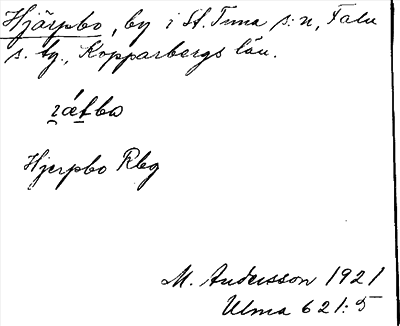 Hjärpbo, by i St. Tuna s:n, Falu
s. tg., Kopparbergs län.
Hjerpbo Rbg
M. Andersson 1921
Ulma 621:5